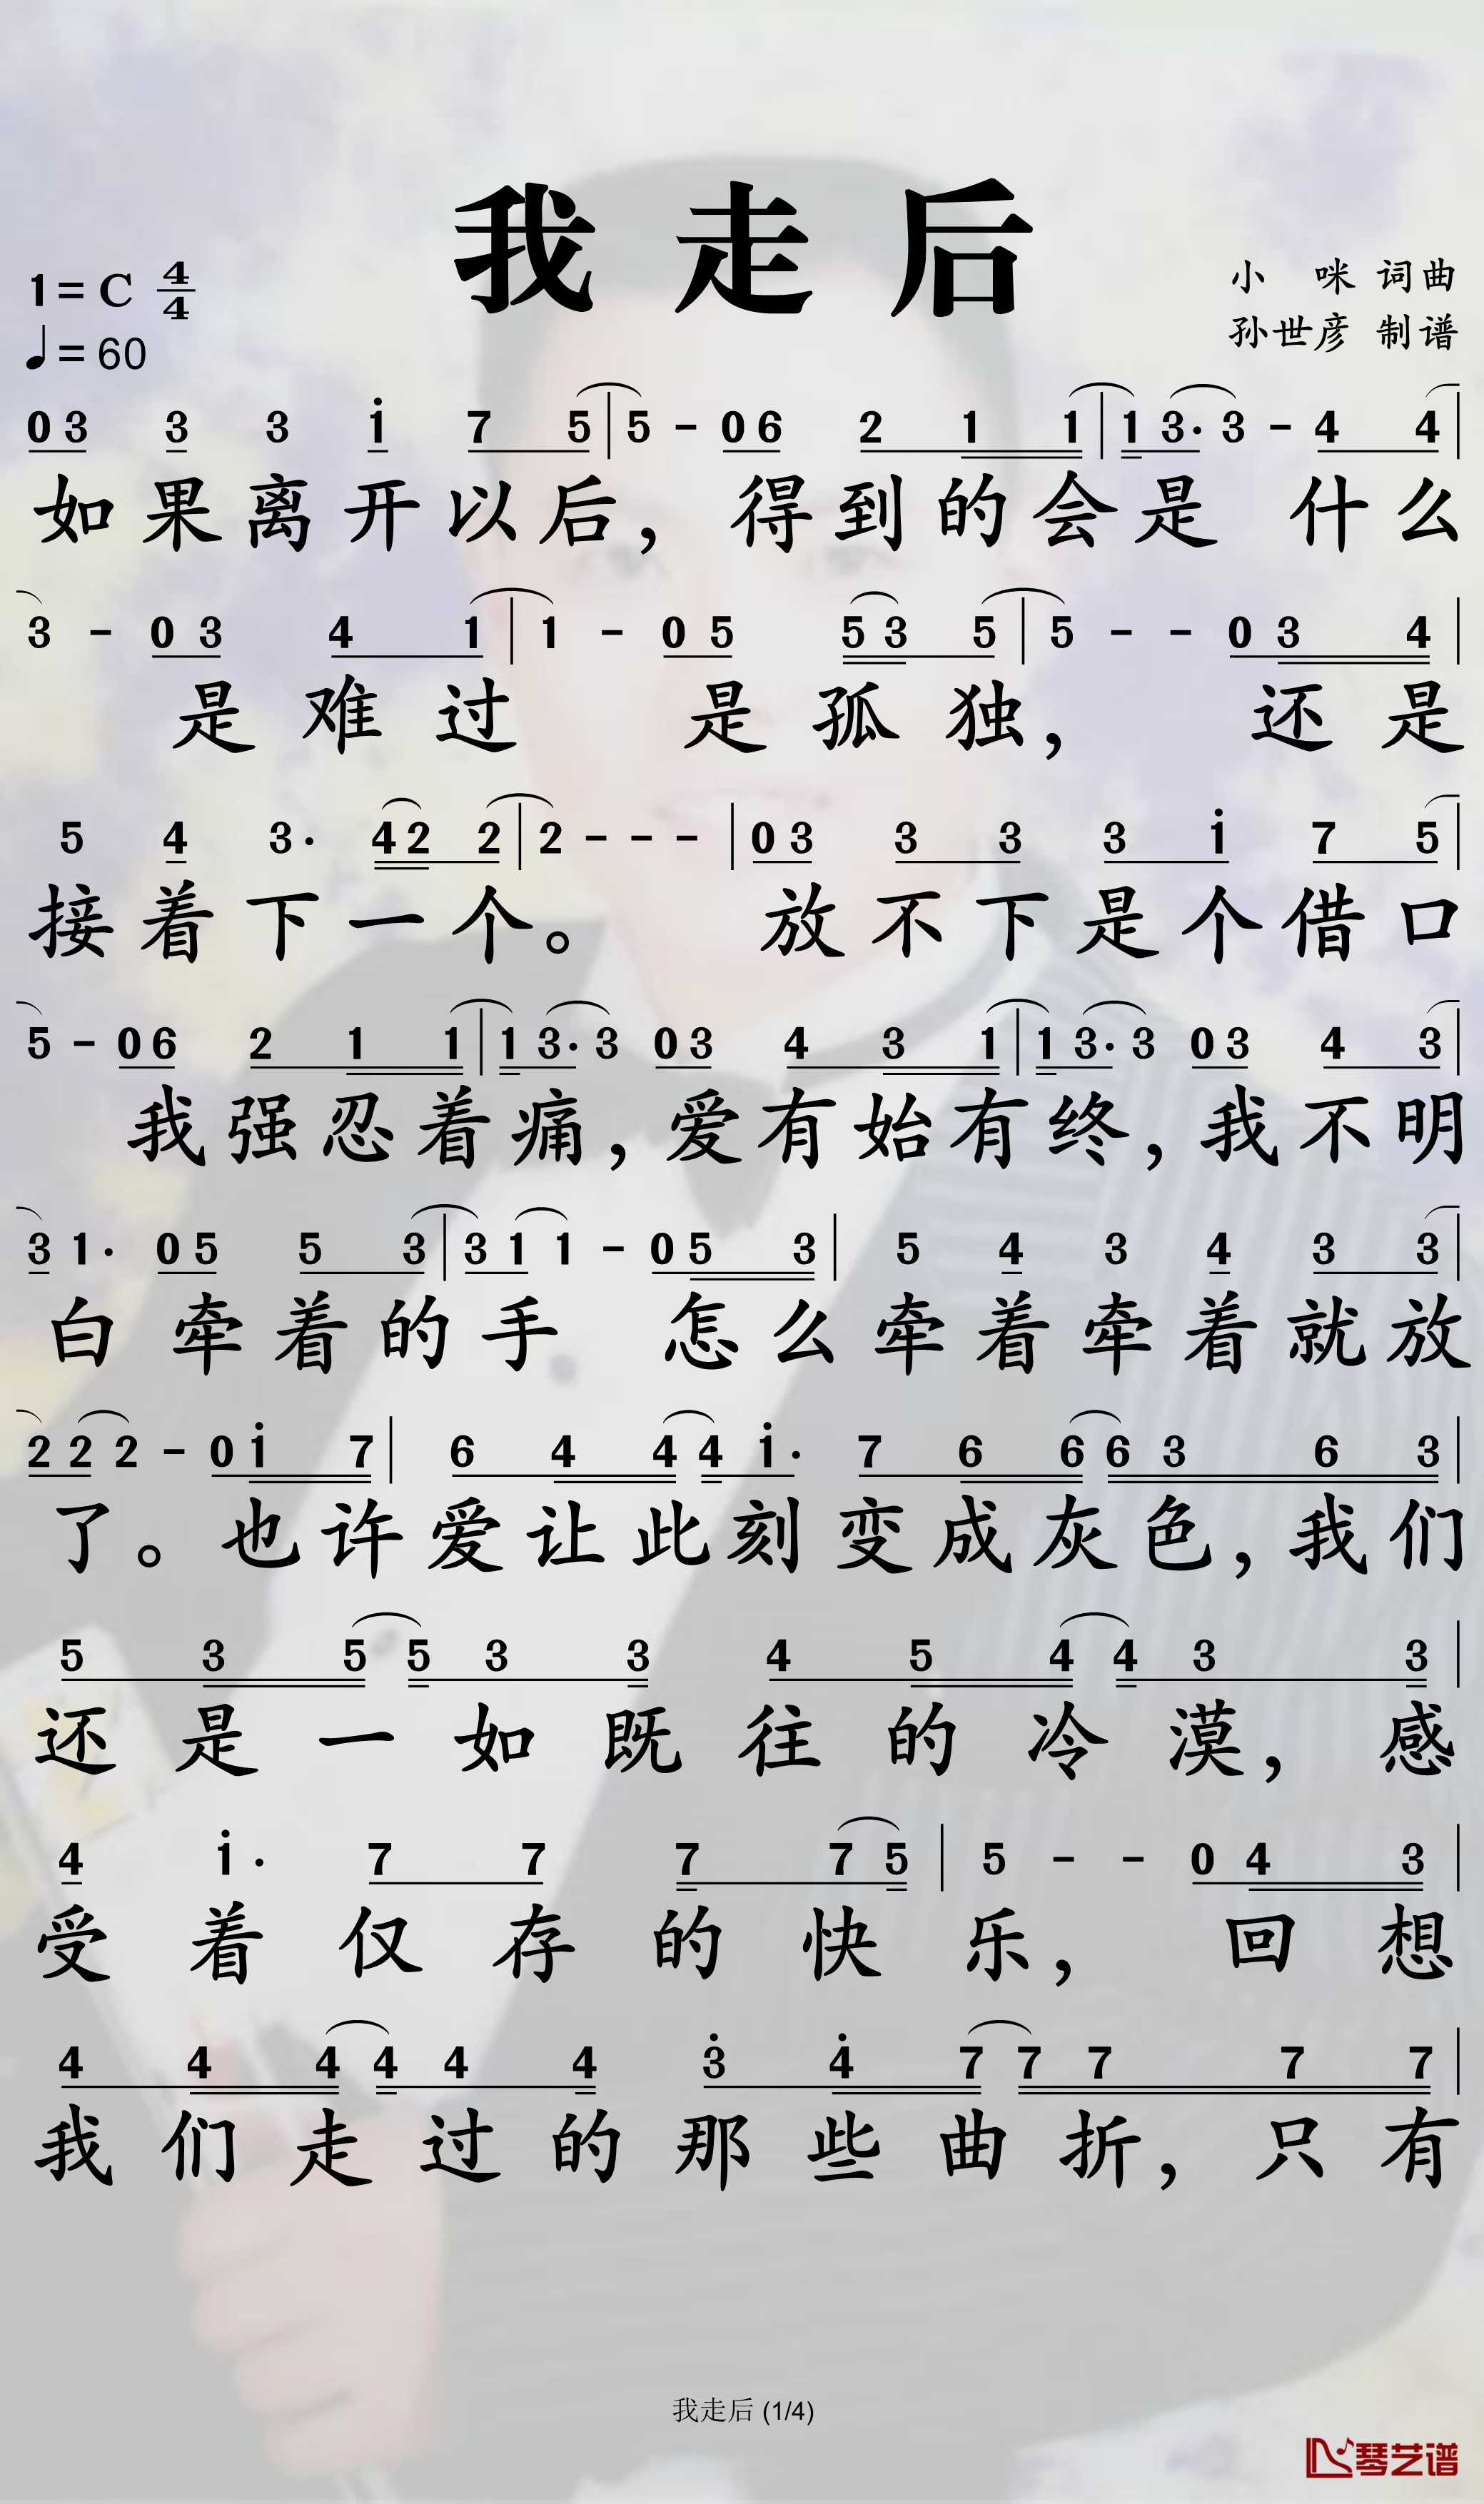 我走后
1=C 4/4
小 咪 词曲
♩=60
孙世彦 制谱
03 3 3 i 7 5 | 5 - 06 2 1 1 | 1 3· 3 - 4 4 |
如果离开以后，得到的会是 什么
3 - 03 4 1 | 1 - 05 53 5 | 5 - - 03 4 |
是难过 是孤独， 还是
5 4 3· 42 2 | 2 - - - | 03 3 3 3 i 7 5 |
接着下一个。 放不下是个借口
5 - 06 2 1 1 | 1 3· 3 03 4 3 1 | 1 3· 3 03 4 3 |
我强忍着痛，爱有始有终，我不明
3 1· 05 5 3 | 3 1 1 - 05 3 | 5 4 3 4 3 3 |
白 牵着的手 怎么牵着牵着就放
2 2 2 - 0 i 7 | 6 4 4 4 i· 7 6 6 6 3 6 3 |
了。也许爱让此刻变成灰色，我们
5 3 5 5 3 3 4 5 4 4 3 3 |
还是一如既往的冷漠，感
4 i· 7 7 7 7 5 | 5 - - 0 4 3 |
受着仅存的快乐， 回想
4 4 4 4 4 4 3̇ 4̇ 7 7 7 7 7 |
我们走过的那些曲折，只有
我走后 (1/4)
琴艺谱